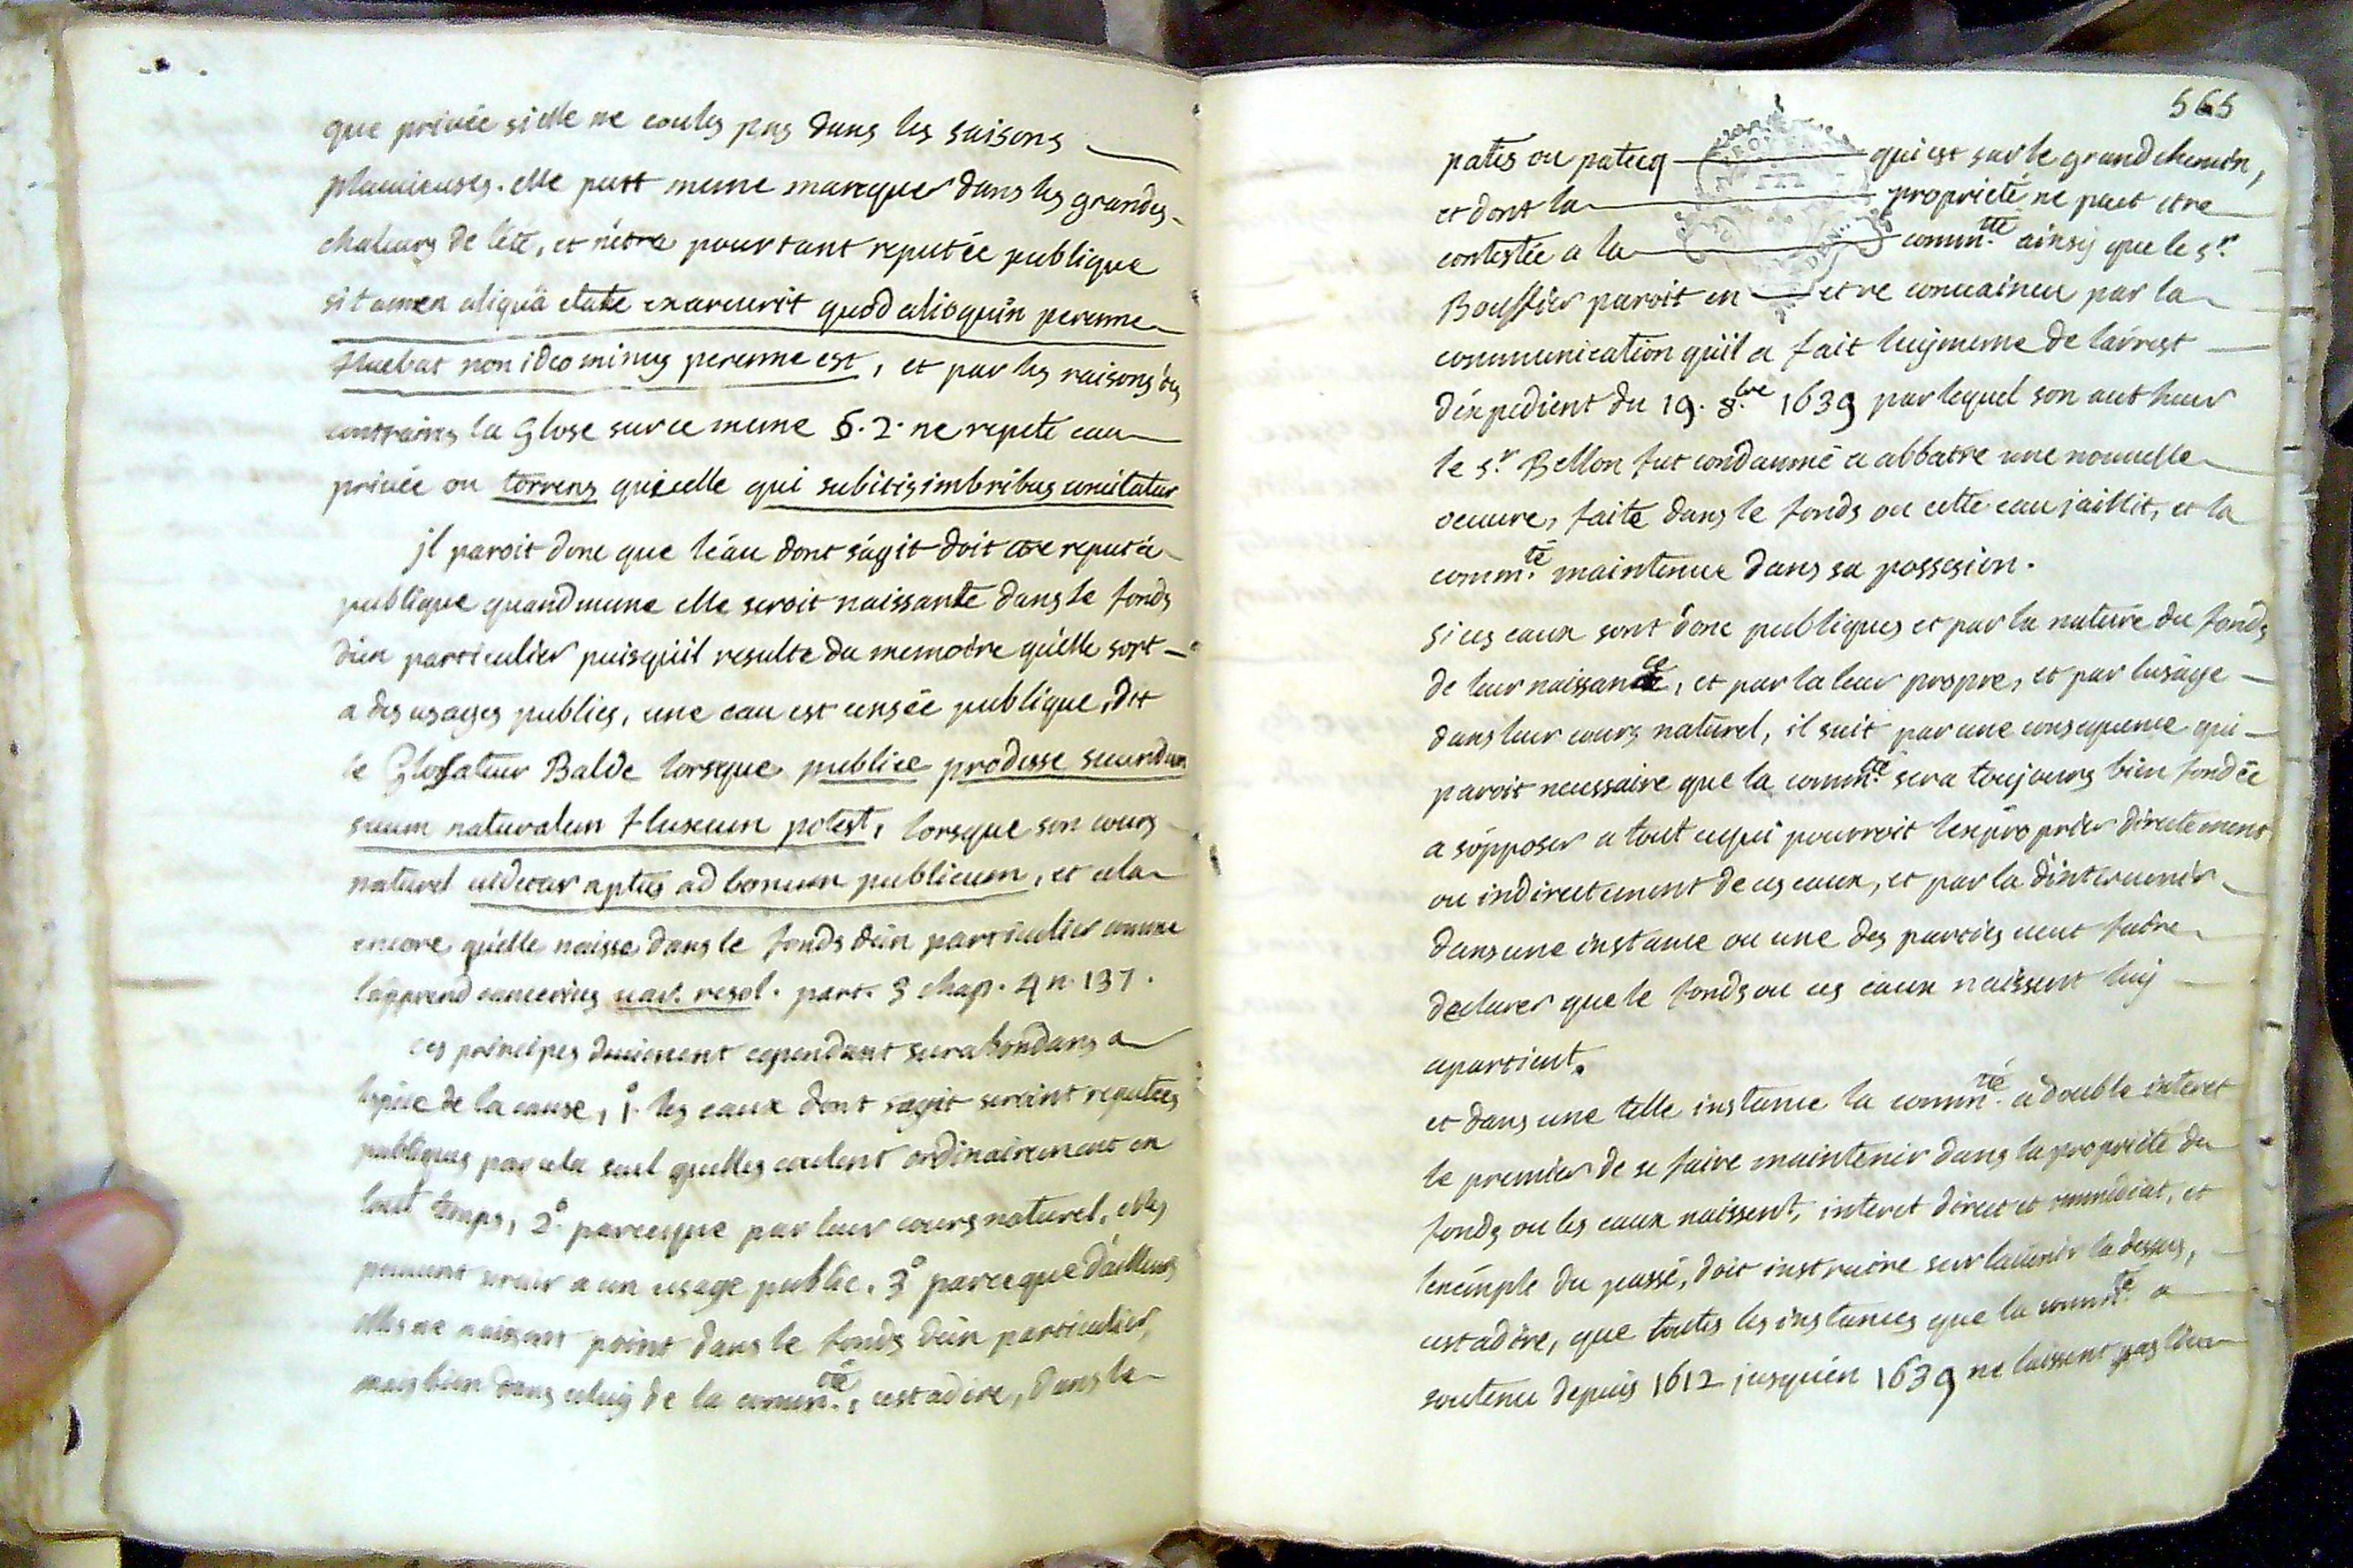 que privée si elle ne coules pas dans les saisons
pluuieuses. elle peut meme manquer dans les grandes
chaleurs de lété, et nétre pourtant reputée publique
si tamen aliquâ etate exarcuerit quod alioquin perenne
fluebat non ideo minus perenne est, et par les raisons des
contraires la Glose sur ce meme §. 2. ne repete eau
privée ou torrens que celle qui subitis imbribus concitatur
jl paroit donc que léau dont ságit doit etre reputée
publique quand meme elle seroit naissante dans le fonds
dún particulier puisquíl resulte du memoire quélle sert
a des usages publics, une eau est censée publique, dit
le Glossateur Balde lorsque publice prodesse secundum
suum naturalem fluxum potest, lorsque son cours
naturel videtur aptus ad bonum publicum, et cela
encore quélle naisse dans le fonds dún particulier comme
lápprend cancerius var. resol. part. 3 chap. 4 n. 137.
ces principes deuiennent cependant surabondans a
lespece de la cause, 1.° les eaux dont sagit seroint reputées
publiques par cela seul quelles coulent ordinairement en
tout temps, 2.° parceque par leur cours naturel, elles
peuuent seruir a un usage public. 3.° parceque dailleurs
elles ne naissent point dans le fonds dún particulier,
mais bien dans celuy de la comm.té, cest adire, dans le
565
patis ou patecq qui est sur le grand chemin,
et dont la propriété ne peut etre
contestée a la comm.té ainsy que le s.r
Bouffier paroit en etre conuaincu par la
communication quíl a fait luy meme de lárrest
déxpedient du 19. 8.bre 1639 par lequel son autheur
le s.r Bellon fut condamné a abbatre une nouuelle
oeuure, faite dans le fonds ou cette eau jaillit, et la
comm.té maintenue dans sa possesion.
si ces eaux sont donc publiques et par la nature du fonds
de leur naissance, et par la leur propre, et par luságe
dans leur cours naturel, il suit par une consequence qui
paroit necessaire que la comm.té sera toujours bien fondée
a sópposer a tout cequi pourroit lexproprier directement
ou indirectement de ces eaux, et par la díntervenir
dans une instance ou une des parties veut faire
declarer que le fonds ou ces eaux naissent luy
apartient.
et dans une telle instance la comm.té a double interet
le premier de se faire maintenir dans la propriété du
fonds ou les eaux naissent, interet direct et immediat, et
lexémple du passé, doit instruire sur lauenir la dessus,
cest adire, que toutes les instances que la comm.té a
soutenu depuis 1612 jusquén 1639 ne laissent pas lieu